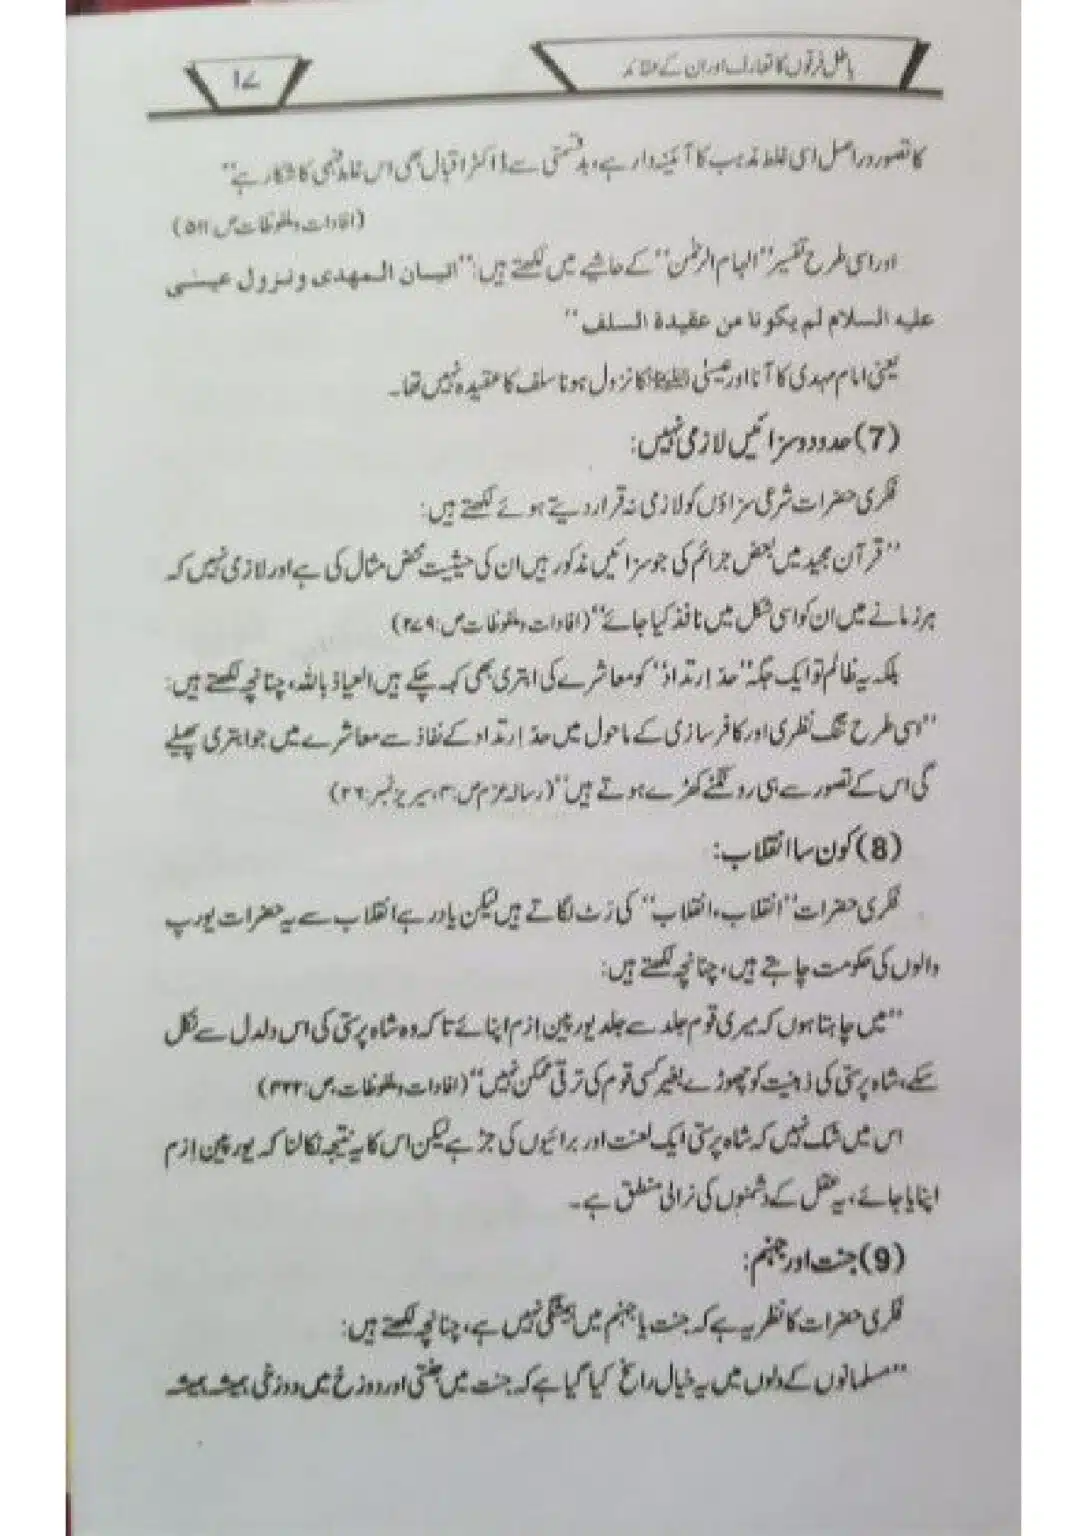 باطل فرقوں کا تعارف اور ان کے عقائد
۱۷
کا تصور دراصل اسی غلط مذہب کا آئینہ دار ہے، بدقسمتی سے ڈاکٹر اقبال بھی اس غلط فہمی کا شکار ہے"
(افادات و ملفوظات ص:۵۱۱)
اور اسی طرح تفسیر "الہام الرحمٰن" کے حاشیے میں لکھتے ہیں: "اتیان المہدی و نزول عیسیٰ
علیہ السلام لم یکونا من عقیدۃ السلف"
یعنی امام مہدی کا آنا اور عیسیٰ علیہ السلام کا نزول ہونا سلف کا عقیدہ نہیں تھا۔
(7) حدود و سزائیں لازمی نہیں:
فکری حضرات شرعی سزاؤں کو لازمی نہ قرار دیتے ہوئے لکھتے ہیں:
"قرآن مجید میں بعض جرائم کی جو سزائیں مذکور ہیں ان کی حیثیت محض مثال کی ہے اور لازمی نہیں کہ
ہر زمانے میں ان کو اسی شکل میں نافذ کیا جائے" (افادات و ملفوظات ص:۲۷۹)
بلکہ یہ ظالم تو ایک جگہ "حد ارتداد" کو معاشرے کی ابتری بھی کہہ چکے ہیں العیاذ باللہ، چنانچہ لکھتے ہیں:
"اسی طرح تنگ نظری اور کافر سازی کے ماحول میں حد ارتداد کے نفاذ سے معاشرے میں جو ابتری پھیلے
گی اس کے تصور سے ہی رونگٹے کھڑے ہوتے ہیں" (رسالہ عزم ص:۳، سیریز نمبر:۲۶)
(8) کون سا انقلاب:
فکری حضرات "انقلاب، انقلاب" کی رَٹ لگاتے ہیں لیکن یاد رہے انقلاب سے یہ حضرات یورپ
والوں کی حکومت چاہتے ہیں، چنانچہ لکھتے ہیں:
"میں چاہتا ہوں کہ میری قوم جلد سے جلد یورپین ازم اپنائے تاکہ وہ شاہ پرستی کی اس دلدل سے نکل
سکے، شاہ پرستی کی ذہنیت کو چھوڑے بغیر کسی قوم کی ترقی ممکن نہیں" (افادات و ملفوظات، ص:۳۲۲)
اس میں شک نہیں کہ شاہ پرستی ایک لعنت اور برائیوں کی جڑ ہے لیکن اس کا یہ نتیجہ نکالنا کہ یورپین ازم
اپنایا جائے، یہ عقل کے دشمنوں کی نرالی منطق ہے۔
(9) جنت اور جہنم:
فکری حضرات کا نظریہ ہے کہ جنت یا جہنم میں ہمیشگی نہیں ہے، چنانچہ لکھتے ہیں:
"مسلمانوں کے دلوں میں یہ خیال راسخ کیا گیا ہے کہ جنت میں جنتی اور دوزخ میں دوزخی ہمیشہ ہمیشہ